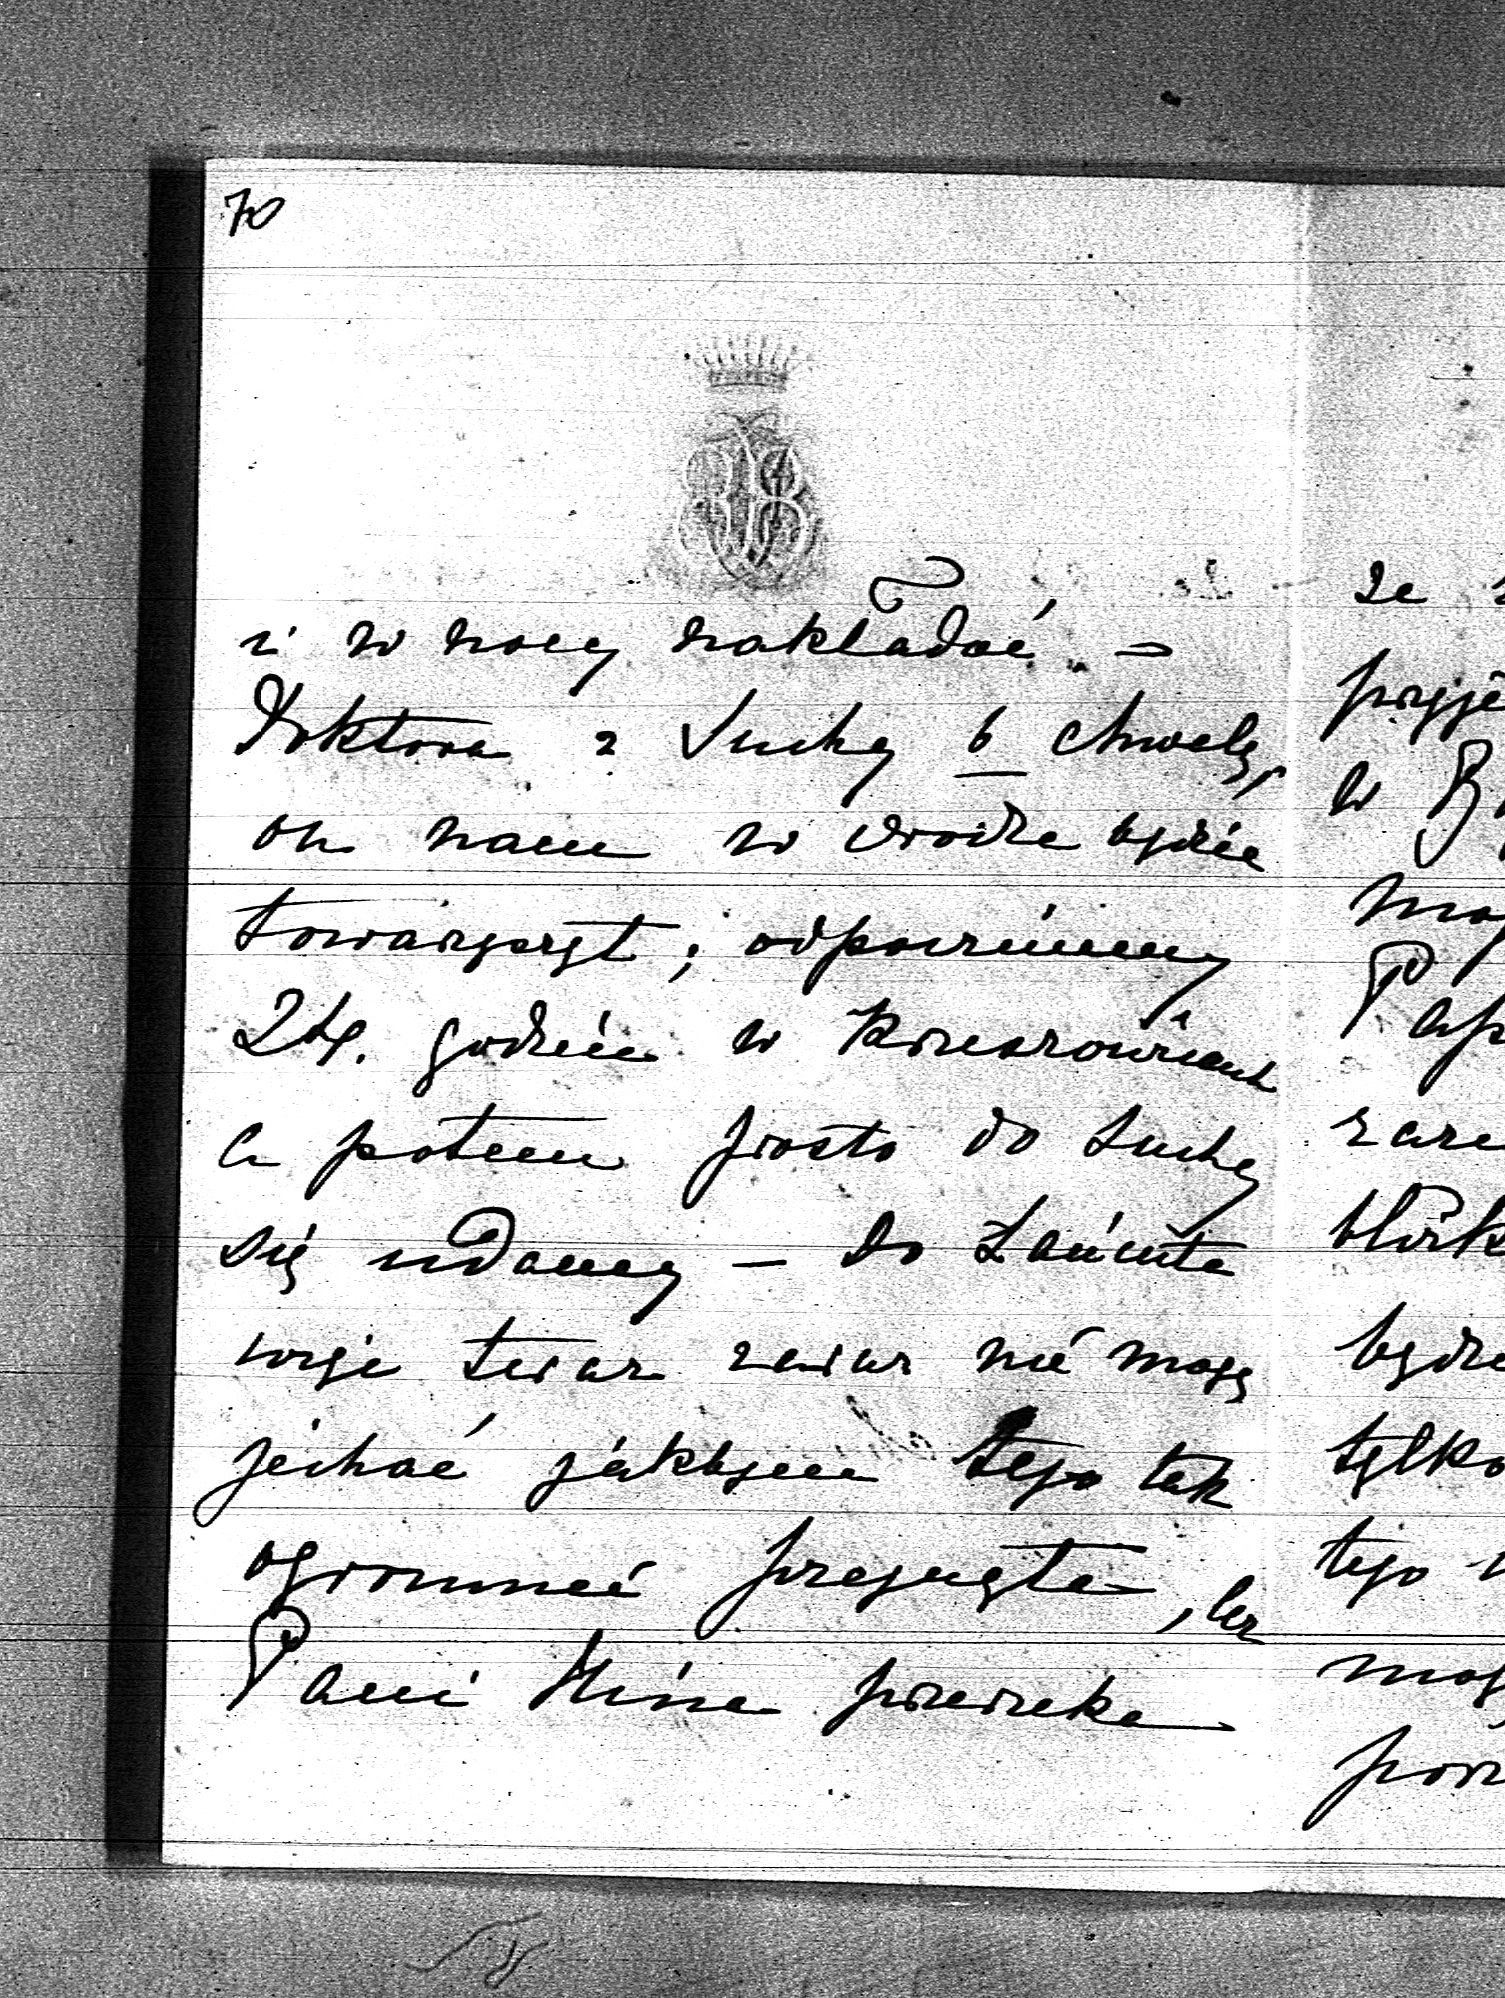 70
i w nocy nakładać. –
Doktora z Suchy b chwalę,
on nam w drodze będzie
towarzyszył; odpoczniemy
24. godzin w Krzeszowicach
a potem prosto do Suchy
się udamy – do Łańcuta
teraz zaraz nie mogę
jechać jakbym tego tak
ogromnie pragnęła, bez
Pani Nina przerzeka
ze
w
będzie
tylko
tego